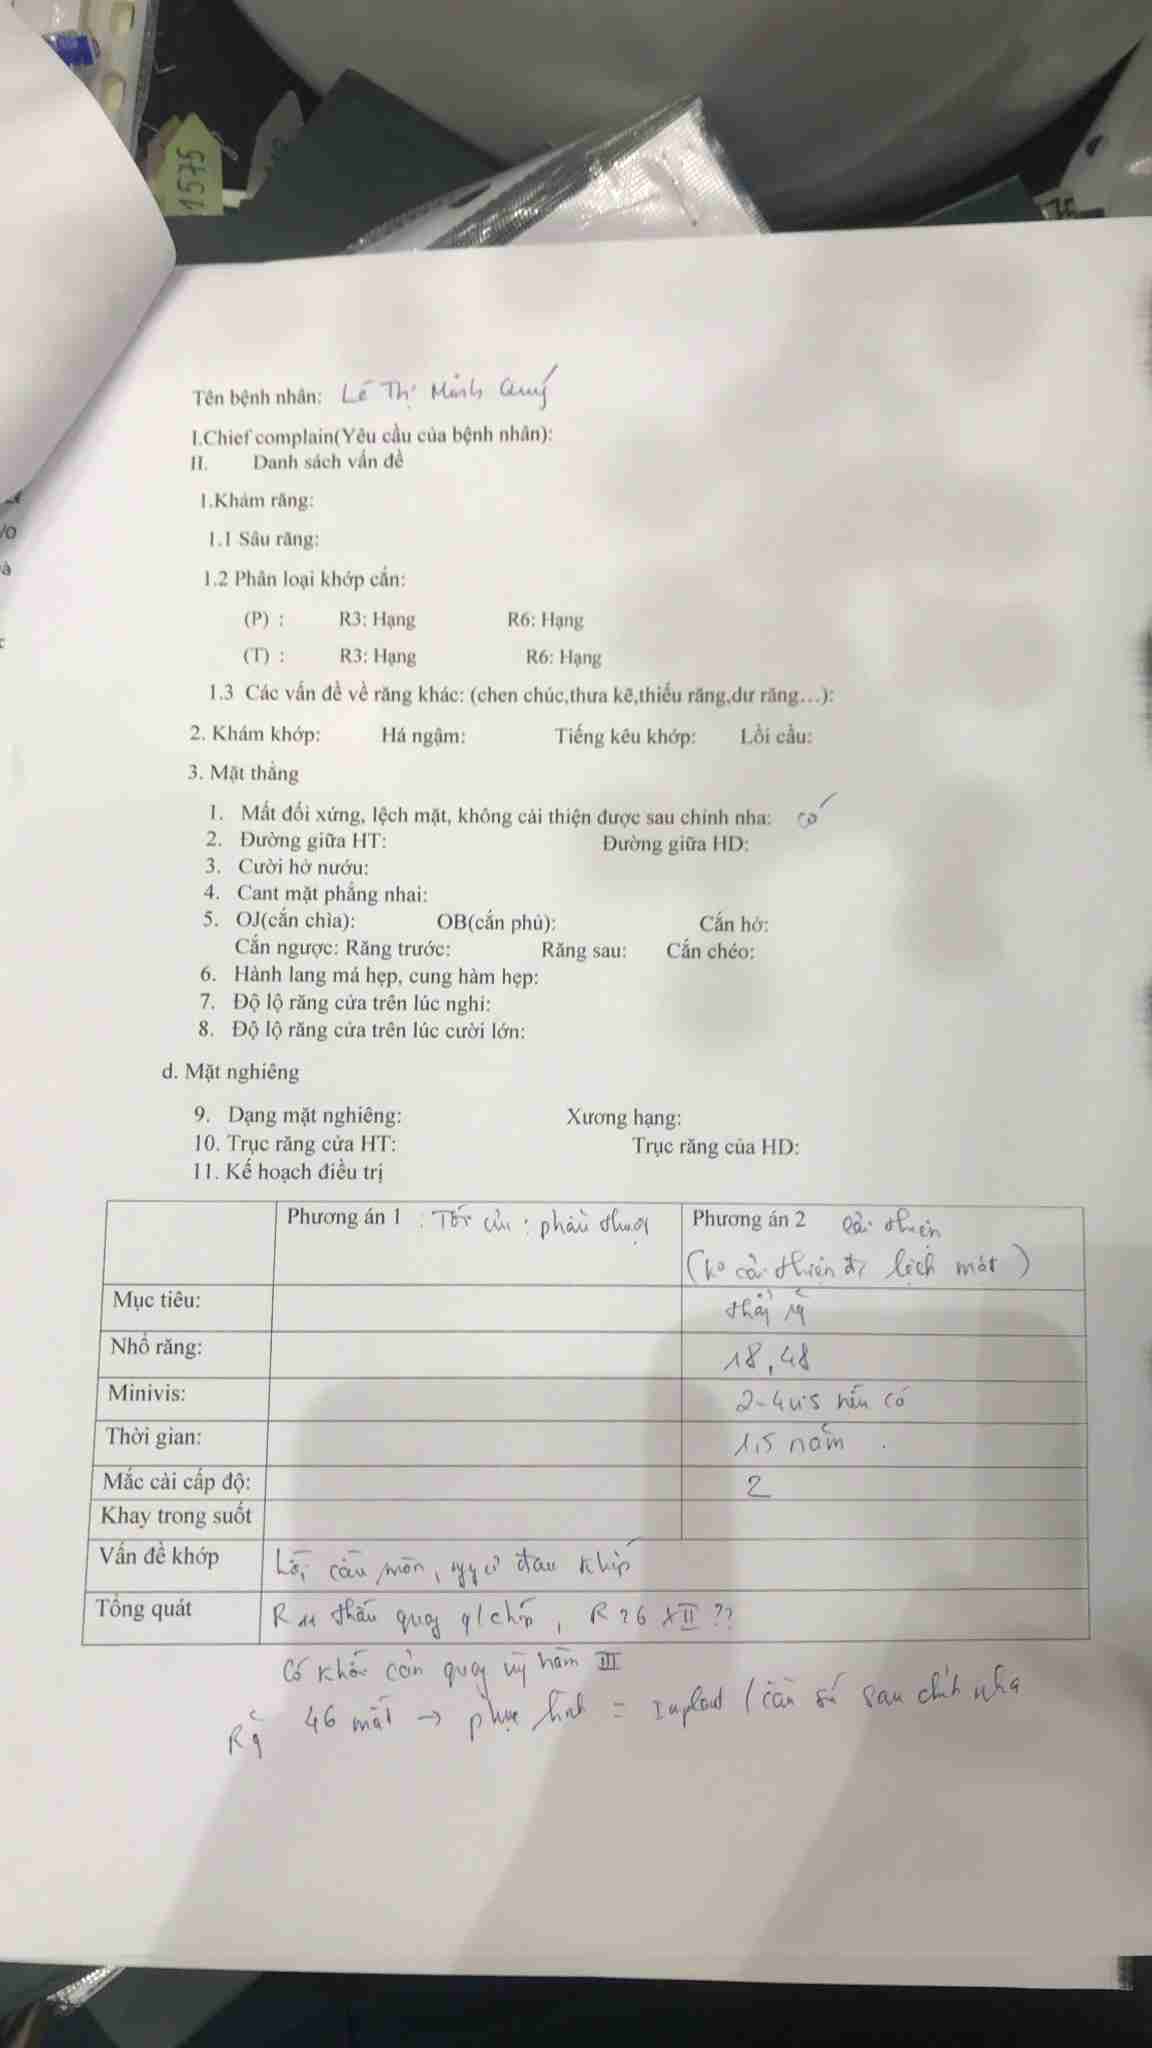 1575
Tên bệnh nhân: Lê Thị Minh Quý
I.Chief complain(Yêu cầu của bệnh nhân):
II. Danh sách vấn đề
1.Khám răng:
1.1 Sâu răng:
1.2 Phân loại khớp cắn:
(P) : R3: Hạng R6: Hạng
(T) : R3: Hạng R6: Hạng
1.3 Các vấn đề về răng khác: (chen chúc,thưa kẽ,thiếu răng,dư răng…):
2. Khám khớp: Há ngậm: Tiếng kêu khớp: Lồi cầu:
3. Mặt thẳng
1. Mất đối xứng, lệch mặt, không cải thiện được sau chỉnh nha: có
2. Đường giữa HT: Đường giữa HD:
3. Cười hở nướu:
4. Cant mặt phẳng nhai:
5. OJ(cắn chìa): OB(cắn phủ): Cắn hở:
Cắn ngược: Răng trước: Răng sau: Cắn chéo:
6. Hành lang má hẹp, cung hàm hẹp:
7. Độ lộ răng cửa trên lúc nghỉ:
8. Độ lộ răng cửa trên lúc cười lớn:
d. Mặt nghiêng
9. Dạng mặt nghiêng: Xương hạng:
10. Trục răng cửa HT: Trục răng của HD:
11. Kế hoạch điều trị
Phương án 1 : Tối ưu : phẫu thuật Phương án 2 cải thiện
(ko cải thiện đc lệch mặt)
Mục tiêu:
Nhổ răng: 18, 48
Minivis: 2-4 vis nếu có
Thời gian: 1,5 năm.
Mắc cài cấp độ: 2
Khay trong suốt
Vấn đề khớp Lồi cầu mòn, ng cơ đau khớp
Tổng quát R 11 thấu quang q/chóp, R 26 ??
Có khối cản quang hàm III
46 mất → phục hình = Implant / cầu sứ sau chỉnh nha